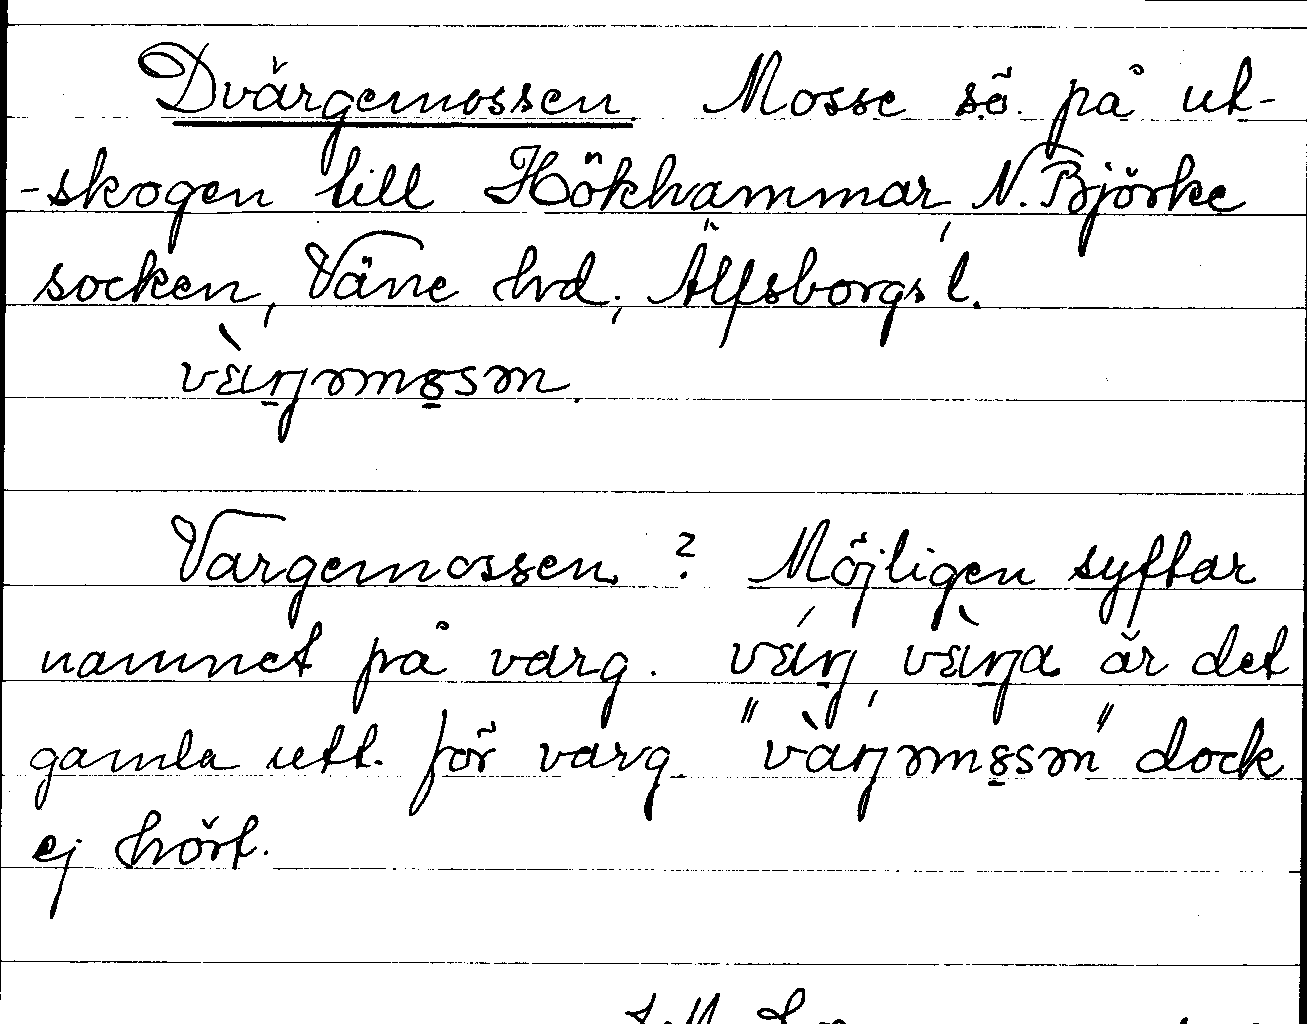 Dvärgemossen. Mosse sö. på ut-
-skogen till Hökhammar, N. Björke
socken, Väne hrd, Älfsborgs l.
Vargemossen. ? Möjligen syftar
namnet på varg. är det
gamla utt. för varg. dock
ej hört.